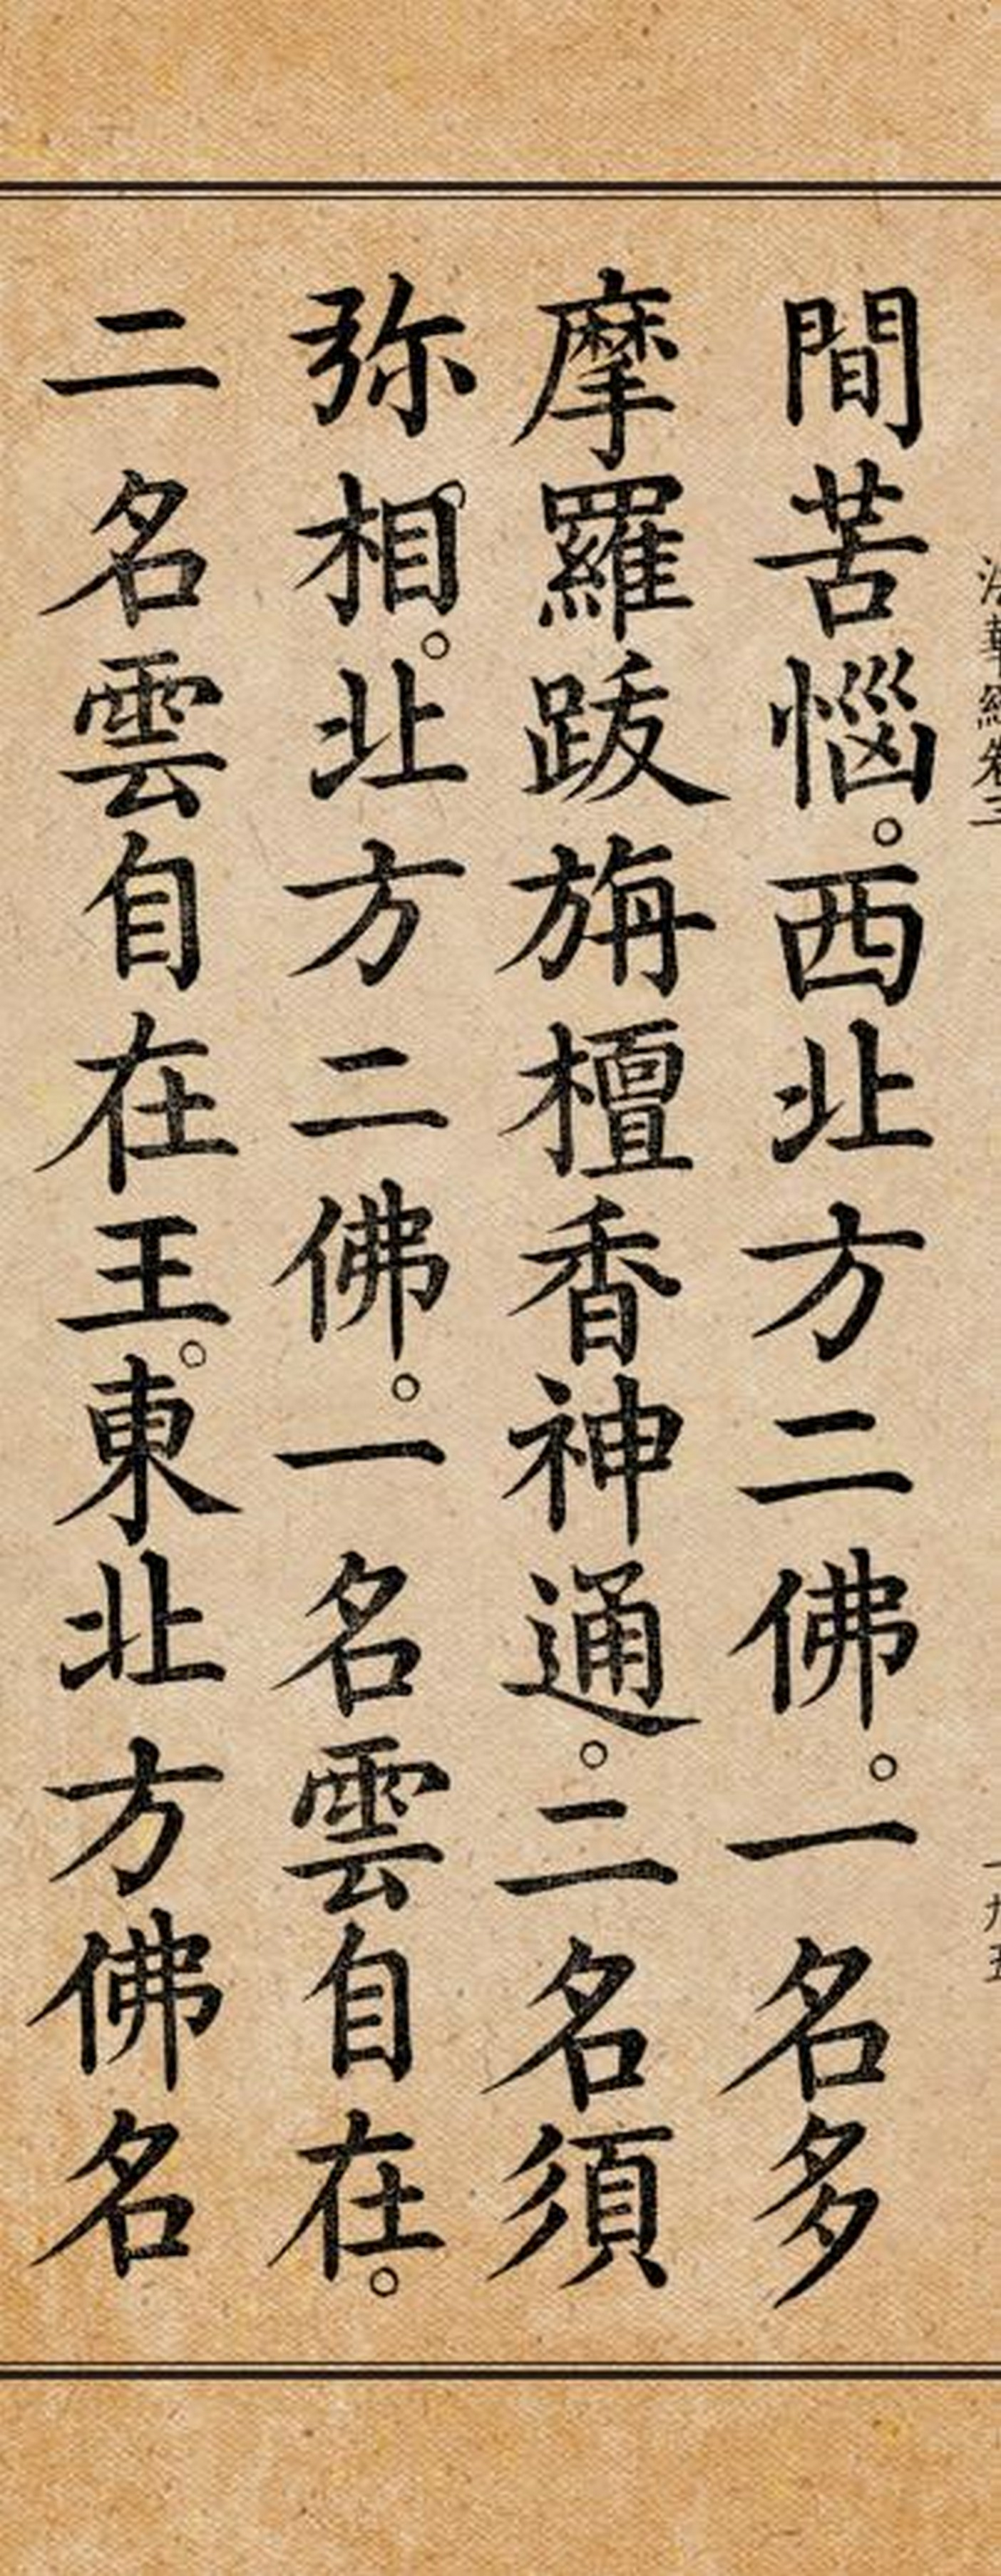 法華經卷三
一九五
間苦惱。西北方二佛。一名多
摩羅跋旃檀香神通。二名須
弥相。北方二佛。一名雲自在。
二名雲自在王。東北方佛名